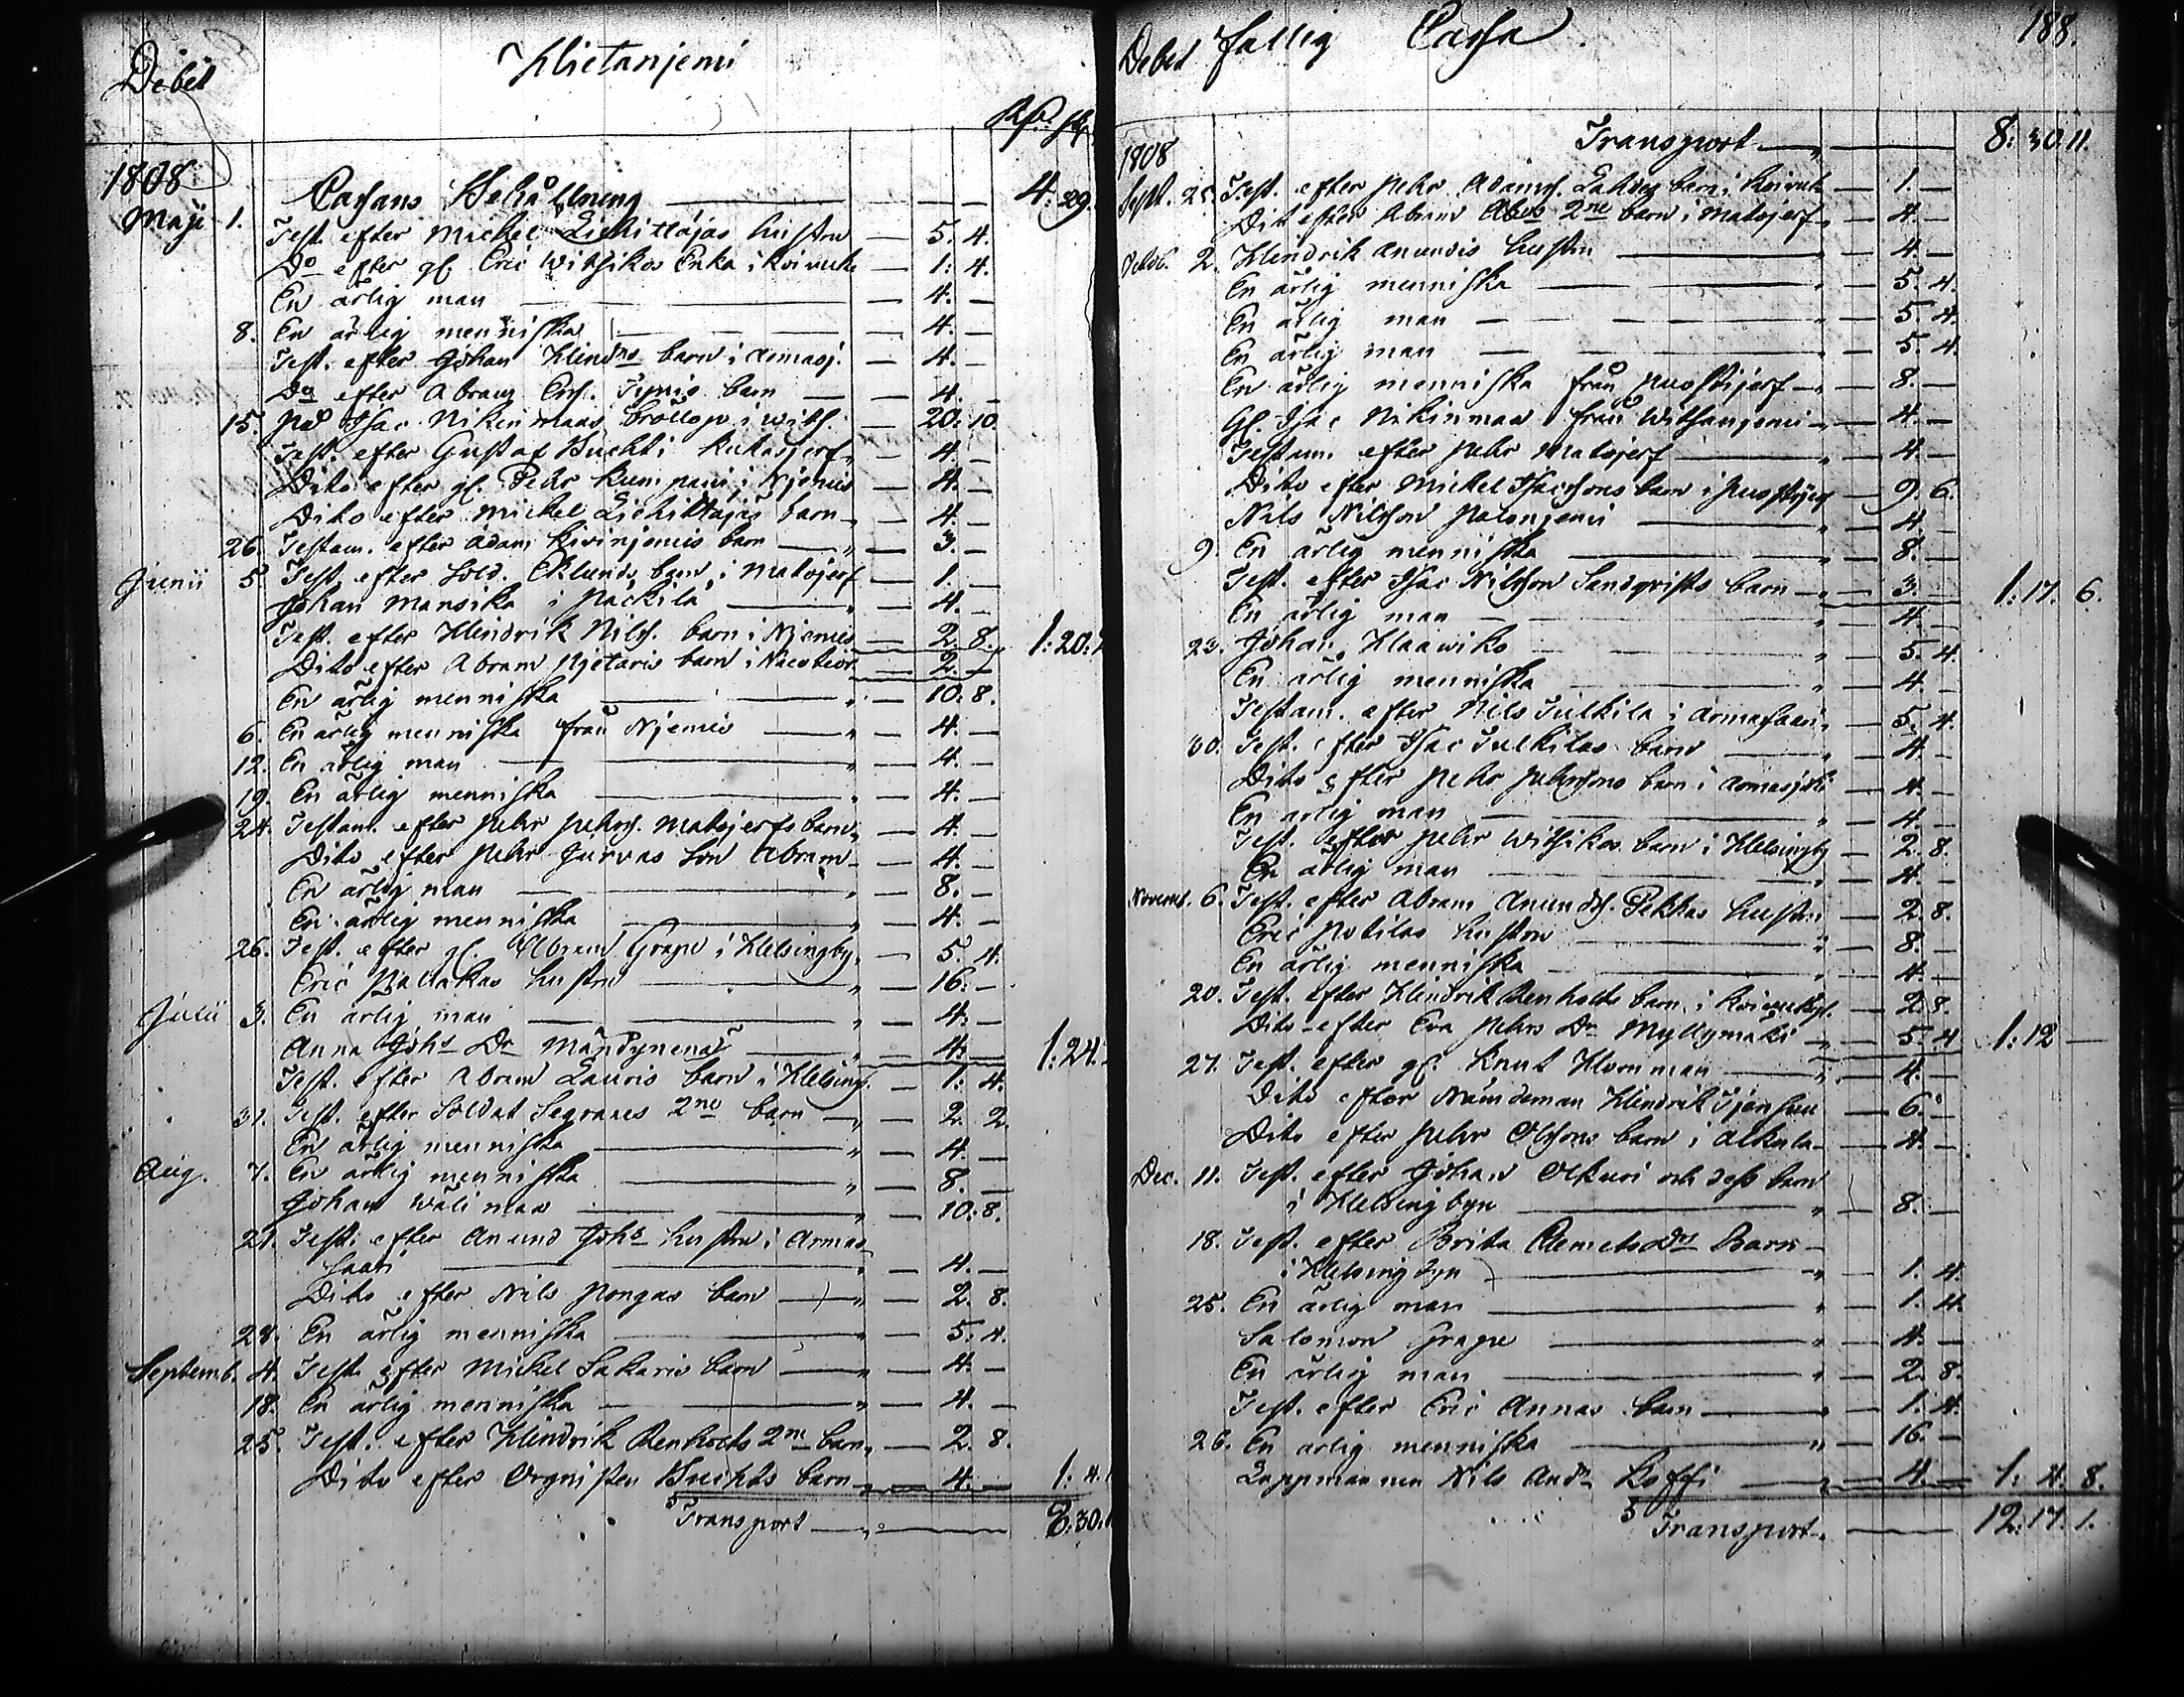 Debet Hietanjemi
Rd. sk.
1808
Cassans Behållning — 4. 29.
Maji 1. Test. efter Michel Liehittäjäs hustru — 5. 4.
Do efter gl. Eric Witsikos Enka i Koivuk — 1: 4.
En ärlig man — 4. —
8. En ärlig menniska — 4. —
Test. efter Johan Hindrs barn i Armasj. — 4. —
Do efter Abram Ers. barn — 4. —
15. på Isac Nikinmaas bröllop i Wits. — 20: 10
Test. efter Gustaf Buchts Kukasjerf — 4. —
Dito efter gl. Pehr Kumpains i Njemis — 4. —
Dito efter Michel Liehittäjäs barn — 4. —
26. Testam. efter Adam Kivinjemis barn — 3. —
Junii 5. Test. efter Sold. Eklunds barn i Matojerf — 1. —
Johan Mansika i Päckilä — 4. —
Test. efter Hindrik Nilss. barn i Njemis — 2. 8. 1: 20:
Dito efter Abram Pjetaris barn i — 2. —
En ärlig menniska — 10: 8.
6. En ärlig menniska från Njemis — 4. —
12. En ärlig man — 4. —
19. En ärlig menniska — 4. —
24. Testam. efter Pehr Pehrs. Matojerfs barn — 4. —
Dito efter Pehr Jurvas Son Abram — 4. —
En ärlig man — 8. —
En ärlig menniska — 4. —
26. Test. efter gl. Abram Grape i Helsingby — 5. 4.
Eric Pallakas hustru — 16. —
Julii 3. En ärlig man — 4. —
Anna Johs Dr Mändynenä — 4. — 1: 24.
Test. efter Abram Lauris barn i Helsing. — 1: 4.
31. Test. efter Soldat Segrares 2ne barn — 2. 2.
En ärlig menniska — 4. —
Aug. 7. En ärlig menniska — 8. —
Johan Wälimaa — 10: 8.
21. Test. efter Anund Johs hustru i Armas
saari — 4. —
Dito efter Nils Pongas barn — 2. 8.
28. En ärlig menniska — 5. 4.
Septemb. 4. Test. efter Mickel Sakaris barn — 4. —
18. En ärlig menniska — 4. —
25. Test. efter Hindrik Renholts 2ne barn — 2. 8.
Dito efter Orgnisten Buchts barn — 4. — 1: 4.
Transport — 8: 30.
Debet fattig Cassa. 188.
1808 Transport — 8: 30. 11.
Sept. 25. Test. efter Pehr Adamss. Lahdes barn i Koivuk — 1. —
Dito efter Abram Abrs 2ne barn i Matojerf — 4. —
Octob. 2. Hindrik Anundis hustru — 4. —
En ärlig menniska — 5. 4.
En ärlig man — 5. 4.
En ärlig man — 5. 4.
En ärlig menniska från Puostijerf — 8. —
Gl. Isac Nikinmaa från Witsanjemi — 4. —
Testam. efter Pehr Matojerf — 4. —
Dito efter Mickel Isacssons barn i Puostijerf — 9. 6.
Nils Nilsson Palonjemi — 4. —
9. En ärlig menniska — 8. —
Test. efter Isac Nilsson Sandqvists barn — 3. — 1: 17. 6.
En ärlig man — 4. —
23. Johan Haawiko — 5. 4.
En ärlig menniska — 4. —
Testam. efter Nils Julkila i Armasaari — 5. 4.
30. Test. efter Isac Julkilas barn — 4. —
Dito efter Pehr Pehrssons barn i Armasjerf — 4. —
En ärlig man — 4. —
Test. efter Pehr Witsikos barn i Helsingby — 2. 8.
En ärlig man — 4. —
Novemb. 6. Test. efter Abram Anundss. Pekkas hustru — 2. 8.
Eric Potilas hustru — 8. —
En ärlig menniska — 4. —
20. Test. efter Hindrik Renholts barn i Koivukyl. — 2. 8.
Dito efter Eva Pehrs Dr Myllymäki — 5. 4 1: 12 —
27. Test. efter gl. Knut Hornman — 4. —
Dito efter Nämdeman Hindrik — 6. —
Dito efter Pehr Olssons barn i Alkula — 4. —
Dec. 11. Test. efter Johan Olkuri och dess barn
i Helsingbyn — 8. —
18. Test. efter Brita Clemetsdrs Barn —
i Helsingbyn — 1. 4.
25. En ärlig man — 1. 4.
Salomon Grape — 4. —
En ärlig man — 2. 8.
Test. efter Eric Annas barn — 1. 4.
26. En ärlig menniska — 16. —
Lappmannen Nils Ands Koffi — 4. — 1: 4. 8.
Transport — 12: 17. 1.